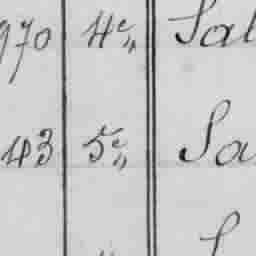 970 4e„ Sal
143 5e„ Sa